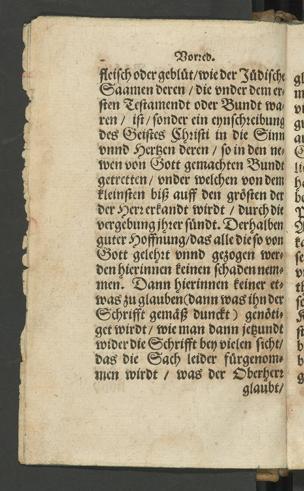 Vorred.
fleisch oder geblüt/wie der Jüdische
Saamen deren/die vnder dem er-
sten Testamendt oder Bundt wa-
ren / ist/ sonder ein eynschreibung
des Geistes Christi in die Sinn
vnnd Hertzen deren / so in den ne-
wen von Gott gemachten Bundt
getretten/ vnder welchen von dem
kleinsten biß auff den grösten der
der Herr erkandt wirdt / durch die
vergebung jhrer sündt. Derhalben
guter Hoffnung/das alle die so von
Gott gelehrt vnnd gezogen wer-
den hierinnen keinen schaden nem-
men. Dann hierinnen keiner et-
was zu glauben(dann was ihn der
Schrifft gemäß dunckt) genöti-
get wirdt/ wie man dann jetzundt
wider die Schrifft bey vielen sicht/
das die Sach leider fürgenom-
men wirdt / was der Oberherr
glaubt/